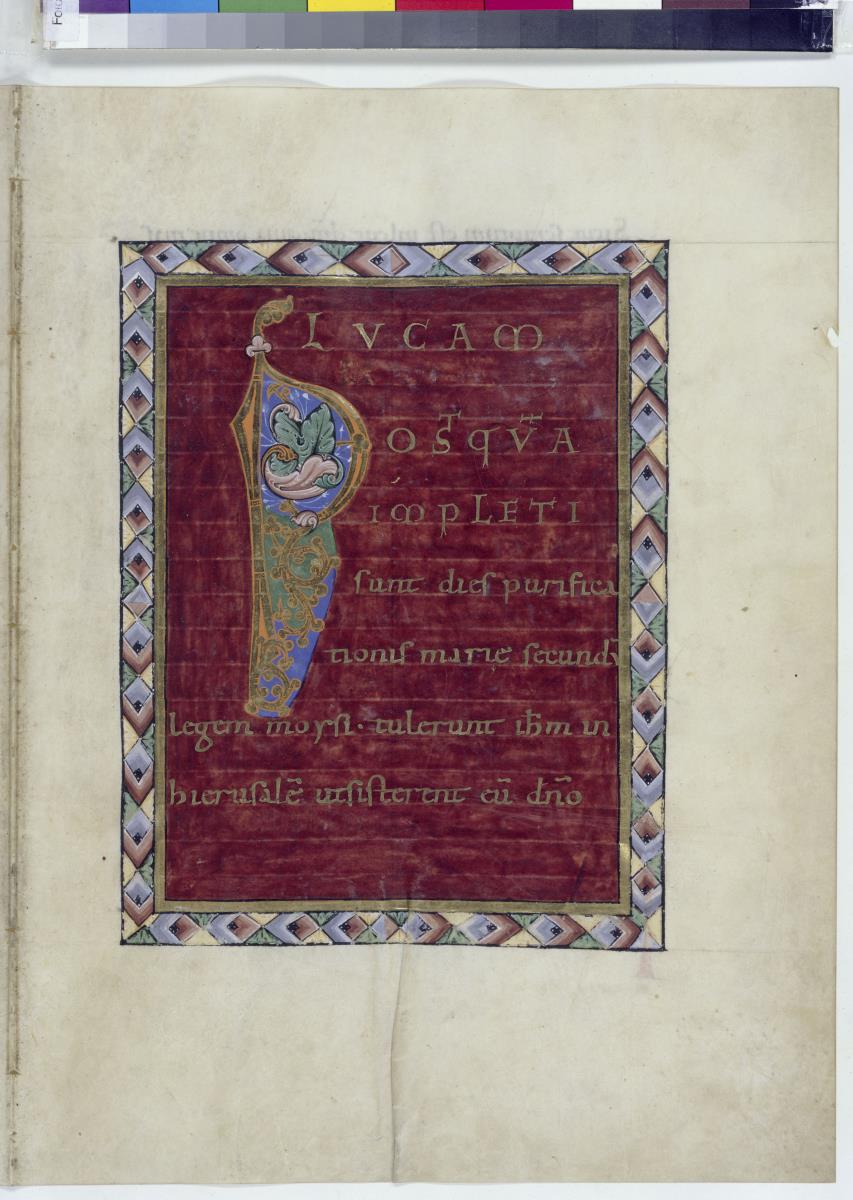 LVCAM
POSTQVA
IMPLETI
sunt dies purifica
tionis marię secundū
legem moysi · tulerunt ihm in
hierusalē ut sisterent eū dño